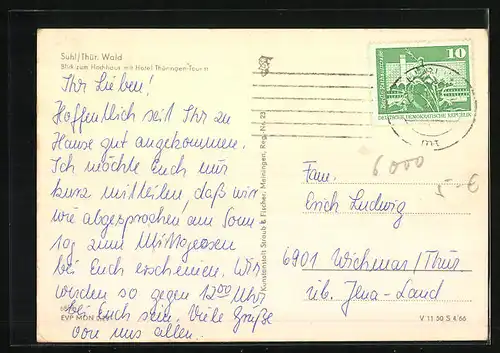 Suhl/Thür. Wald
Blick zum Hochhaus mit Hotel Thüringen-Tourist
Ihr Lieben!
Hoffentlich seit Ihr zu
Hause gut angekommen.
Ich möchte Euch nur
kurz mitteilen, daß wir
wie abgesprochen am Sonn
tag zum Mittagessen
bei Euch erscheinen. Wir
werden so gegen 12 00 Uhr
bei Euch sein. Viele Grüße
von uns allen.
V 11 50 S 4/66
Kunstanstalt Straub & Fischer, Meiningen, Reg.-Nr. 23
10
DEUTSCHE DEMOKRATISCHE REPUBLIK
6000
5-6
Fam.
Erich Ludwig
6901 Wichmar/Thür
üb. Jena-Land